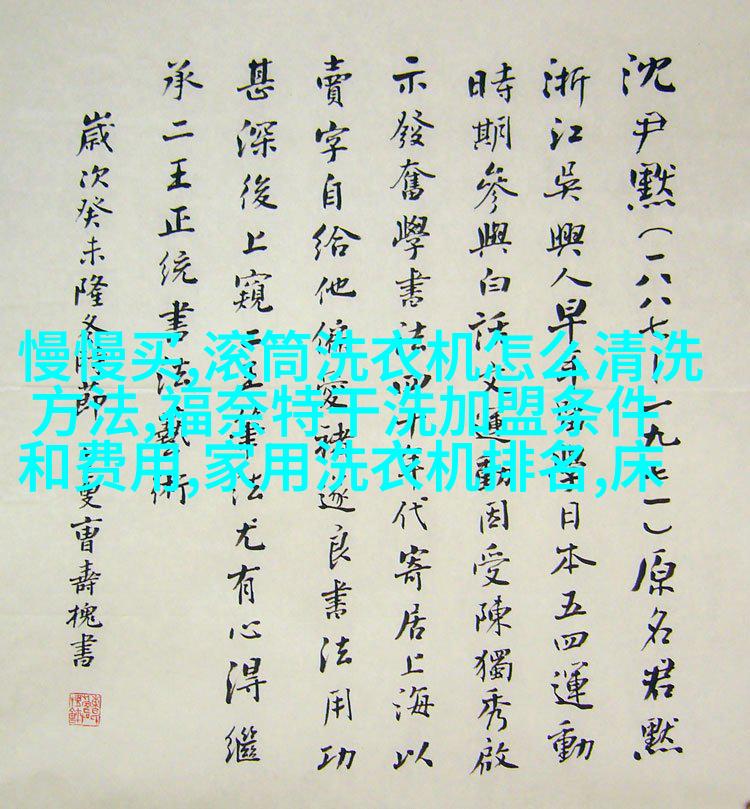 沈尹默(一八八七—一九七一)原名君默
浙江吳興人早年留學日本五四運動
時期參與白話文運動因受陳獨秀啟
示發奮學書法四十年代寄居上海以
賣字自給他偏愛褚遂良書法用功
甚深後上窺二王筆法尤有心得繼
承二王正统書法藝術
歲次癸未隆冬 節 曹壽槐書
慢慢买,滚筒洗衣机怎么清洗
方法,福奈特干洗加盟条件
和费用,家用洗衣机排名,床